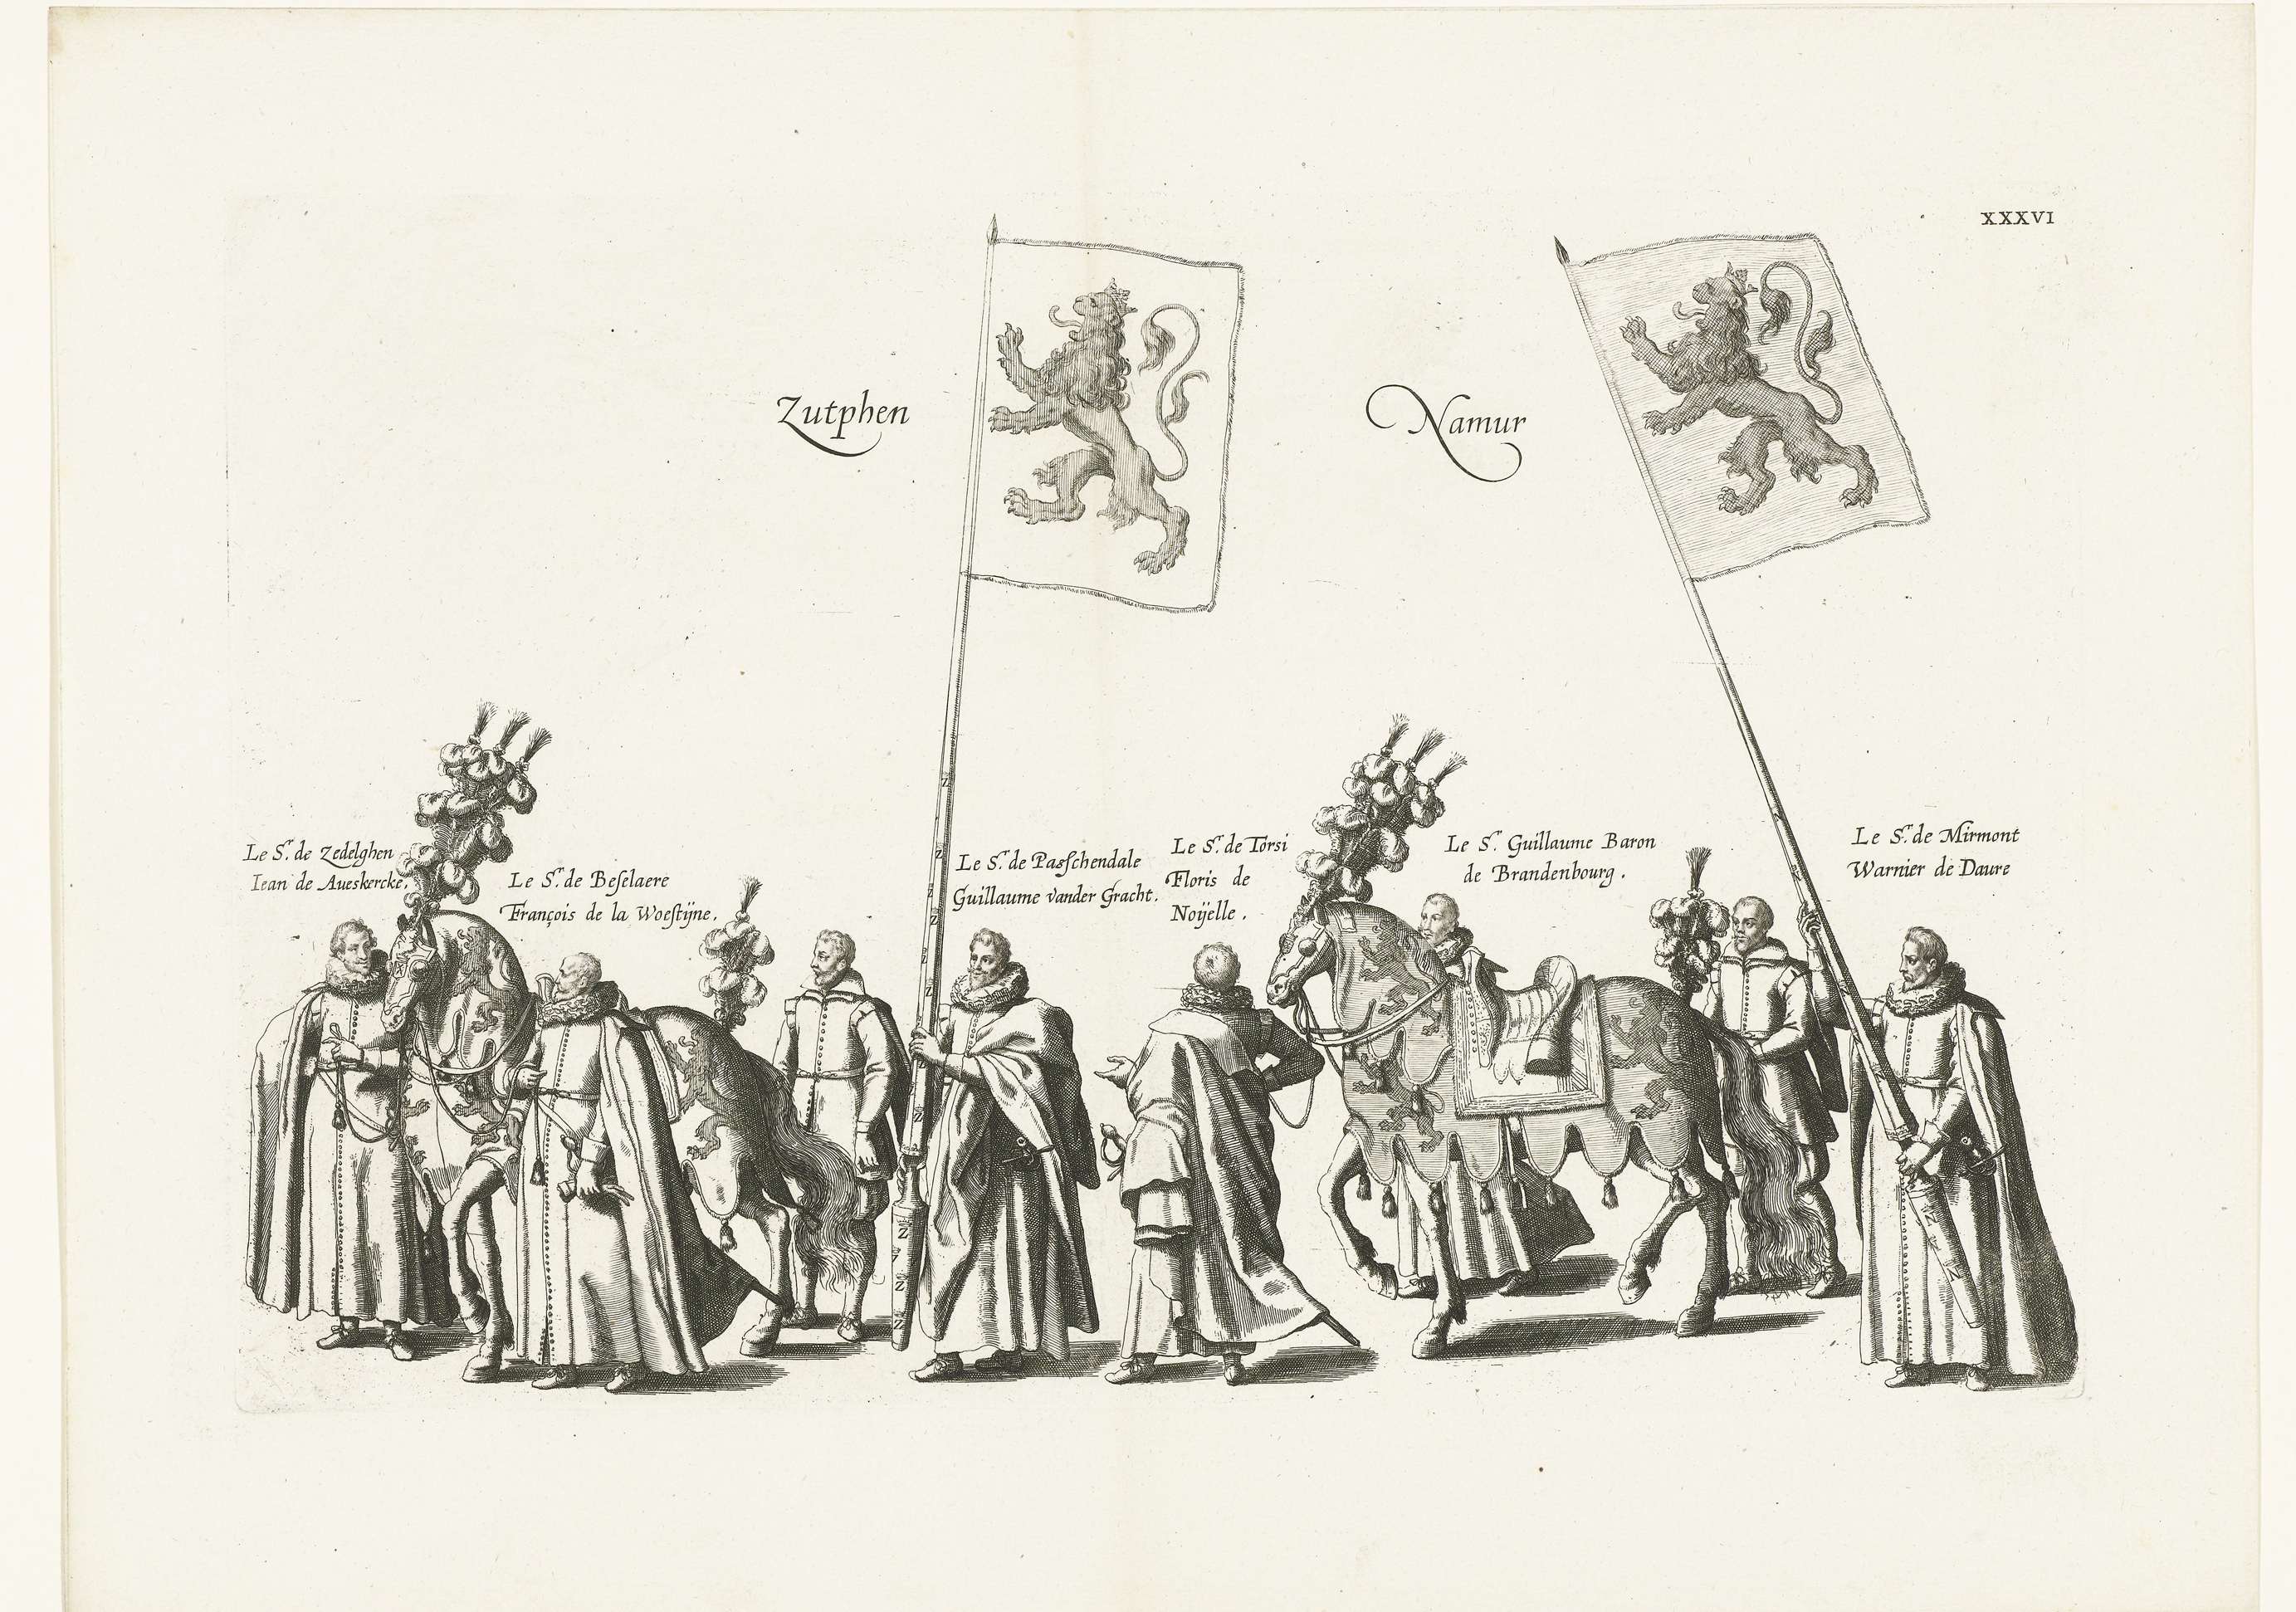 XXXVI
Zutphen
Namur
Le Sr. de Zedelghen
Iean de Aueskercke.
Le Sr. de Beſelaere
François de la Woeſtijne.
Le Sr. de Paſſchendale
Guillaume vander Gracht.
Le Sr. de Torsi
Floris de
Noÿelle.
Le Sr. Guillaume Baron
de Brandenbourg.
Le Sr. de Mirmont
Warnier de Daure